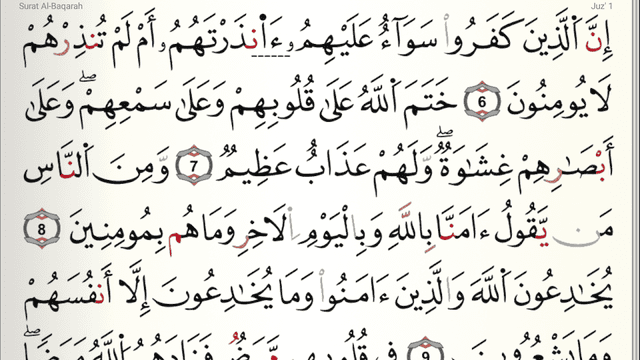 Surat Al-Baqarah Juz' 1
إِنَّ ٱلَّذِينَ كَفَرُوا۟ سَوَآءٌ عَلَيْهِمُۥٓ ءَا۬نذَرْتَهُمُۥٓ أَمْ لَمْ تُنذِرْهُمْ
لَا يُومِنُونَ 6 خَتَمَ ٱللَّهُ عَلَىٰ قُلُوبِهِمْ وَعَلَىٰ سَمْعِهِمْۖ وَعَلَىٰٓ
أَبْصَٰرِهِمْ غِشَٰوَةٌۖ وَلَهُمْ عَذَابٌ عَظِيمٌ 7 وَمِنَ ٱلنَّاسِ
مَن يَّقُولُ ءَامَنَّا بِٱللَّهِ وَبِٱلْيَوْمِ ٱلَاخِرِ وَمَا هُم بِمُومِنِينَ 8
يُخَٰدِعُونَ ٱللَّهَ وَٱلَّذِينَ ءَامَنُوا۟ وَمَا يُخَٰدِعُونَ إِلَّآ أَنفُسَهُمْ
وَمَا يَشْعُرُونَ 9 فِى قُلُوبِهِم مَّرَضٌ فَزَادَهُمُ ٱللَّهُ مَرَضًاۖ